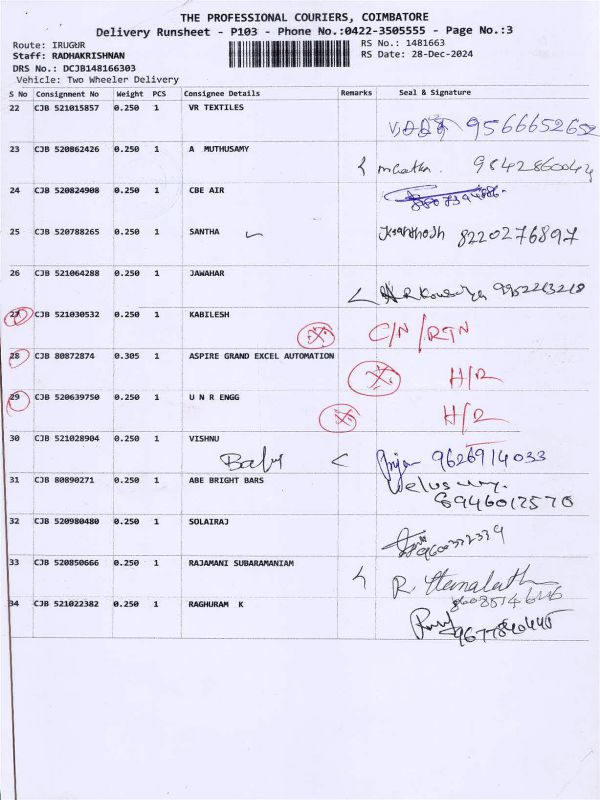 THE PROFESSIONAL COURIERS, COIMBATORE
Delivery Runsheet - P103 - Phone No.:0422-3505555 - Page No.:3
Route: IRUGUR
RS No.: 1481663
Staff: RADHAKRISHNAN
RS Date: 28-Dec-2024
DRS No.: DCJB148166303
Vehicle: Two Wheeler Delivery
S No Consignment No Weight PCS Consignee Details Remarks Seal & Signature
22 CJB 521015857 0.250 1 VR TEXTILES
9566652652
23 CJB 520862426 0.250 1 A MUTHUSAMY
24 CJB 520824908 0.250 1 CBE AIR
25 CJB 520788265 0.250 1 SANTHA
8220276897
26 CJB 521064288 0.250 1 JAWAHAR
27 CJB 521030532 0.250 1 KABILESH
C/N/RTN
28 CJB 80872874 0.305 1 ASPIRE GRAND EXCEL AUTOMATION
H/R
29 CJB 520639750 0.250 1 U N R ENGG
H/R
30 CJB 521028904 0.250 1 VISHNU
Baby 9626914033
31 CJB 80890271 0.250 1 ABE BRIGHT BARS
32 CJB 520980480 0.250 1 SOLAIRAJ
33 CJB 520850666 0.250 1 RAJAMANI SUBARAMANIAM
34 CJB 521022382 0.250 1 RAGHURAM K